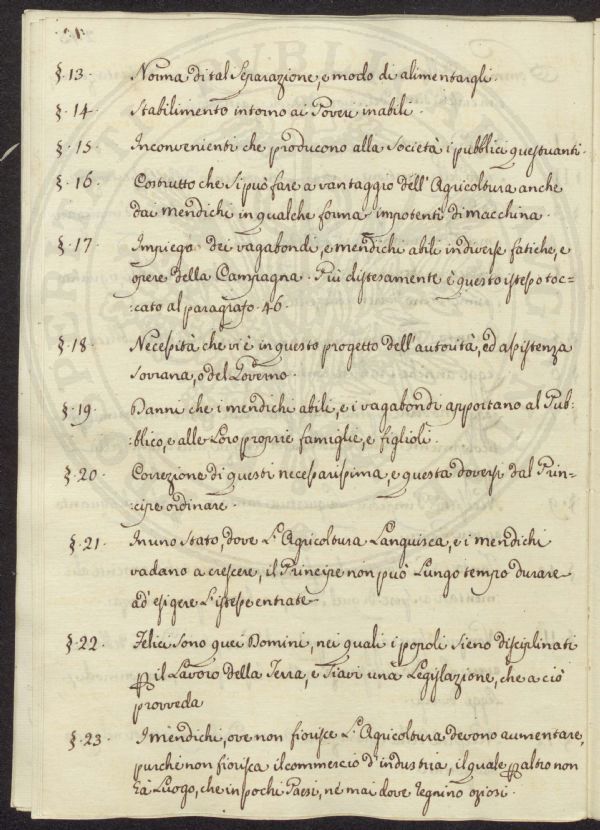 §. 13. Norma di tal Separazione, e modo di alimentargli.
§. 14. Stabilimento intorno ai Poveri inabili.
§. 15. Inconvenienti che producono alla Società i pubblici questuanti.
§. 16. Costrutto che si può fare a vantaggio dell'Agricoltura anche
dai mendichi in qualche forma impotenti di macchina.
§. 17. Impiego dei vagabondi, e mendichi abili in diverse fatiche, e
opere della Campagna. Più distesamente è questo istesso toc=
:cato al paragrafo. 46.
§. 18. Necessità che vi è in questo progetto dell'autorità, ed assistenza
sovrana, o del Governo.
§. 19. Danni che i mendichi abili, e i vagabondi apportano al Pub=
:blico, e alle Loro proprie famiglie, e figlioli.
§. 20. Correzione di questi necessarissima, e questa doversi dal Prin=
:cipe ordinare.
§. 21. In uno Stato, dove L'Agricoltura Languisca, e i mendichi
vadano a crescere, il Principe non può Lungo tempo durare
ad esigere L'istesse entrate
§. 22. Felici sono quei Domini, nei quali i popoli sieno disciplinati
p il Lavoro della Terra, e siavi una Legislazione, che a ciò
provveda
§. 23. I mendichi, ove non fiorisce L'Agricoltura devono aumentare,
purchè non fiorisca il commercio d'industria, il quale p altro non
hà Luogo, che in pochi Paesi, nè mai dove regnino oziosi.